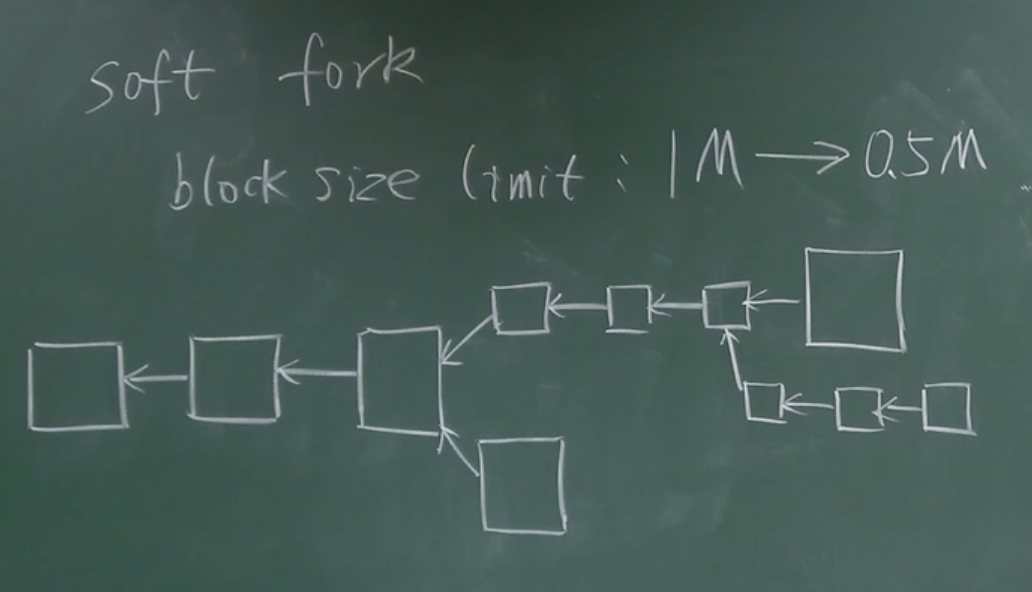 soft fork
block size limit : 1M → 0.5M